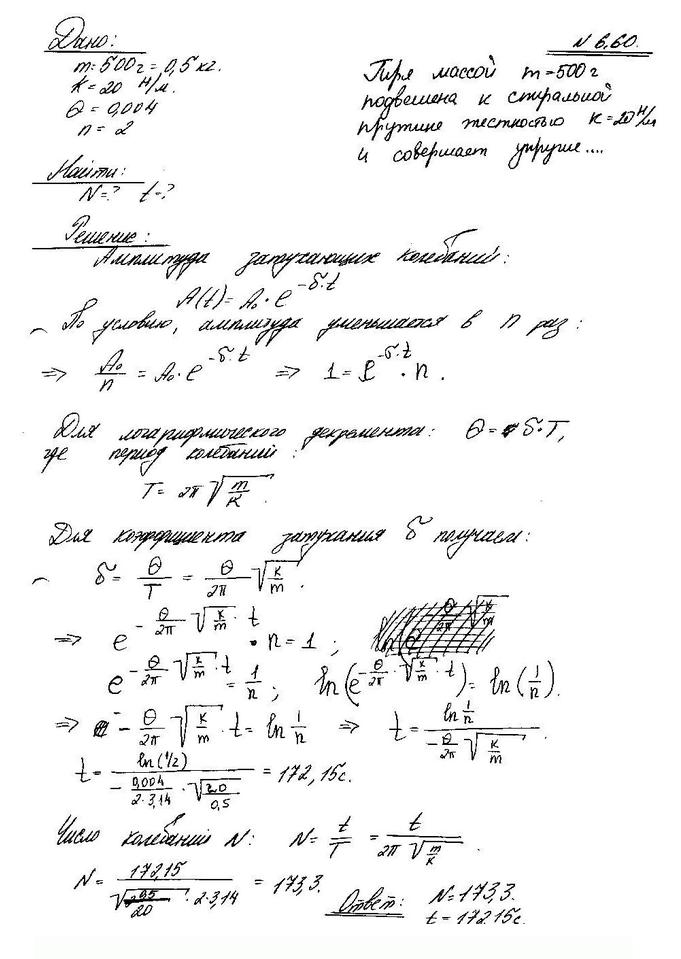 Дано:
m = 500 г = 0,5 кг.
K = 20 Н/м.
Θ = 0,004
n = 2
N 6.60.
Гиря массой m = 500 г
подвешена к спиральной
пружине жесткостью K = 20 Н/м
и совершает упругие....
Найти:
N = ? t = ?
Решение:
Амплитуда затухающих колебаний:
A(t) = A₀ · e^(-δ·t)
По условию, амплитуда уменьшается в n раз:
=> A₀/n = A₀ · e^(-δ·t) => 1 = e^(-δ·t) · n.
Для логарифмического декремента: Θ = δ·T,
где период колебаний:
T = 2π √(m/K).
Для коэффициента затухания δ получаем:
δ = Θ/T = Θ/2π √(K/m).
=> e^(-Θ/2π √(K/m) · t) · n = 1;
e^(-Θ/2π · √(K/m) · t) = 1/n; ln(e^(-Θ/2π · √(K/m) · t)) = ln(1/n).
=> -Θ/2π √(K/m) · t = ln 1/n => t = ln 1/n / (-Θ/2π √(K/m))
t = ln(1/2) / (- 0,004/2·3,14 · √(20/0,5)) = 172,15 с.
Число колебаний N: N = t/T = t / (2π √(m/K)).
N = 172,15 / (√(0,5/20) · 2·3,14) = 173,3.
Ответ: N = 173,3.
t = 172,15 с.